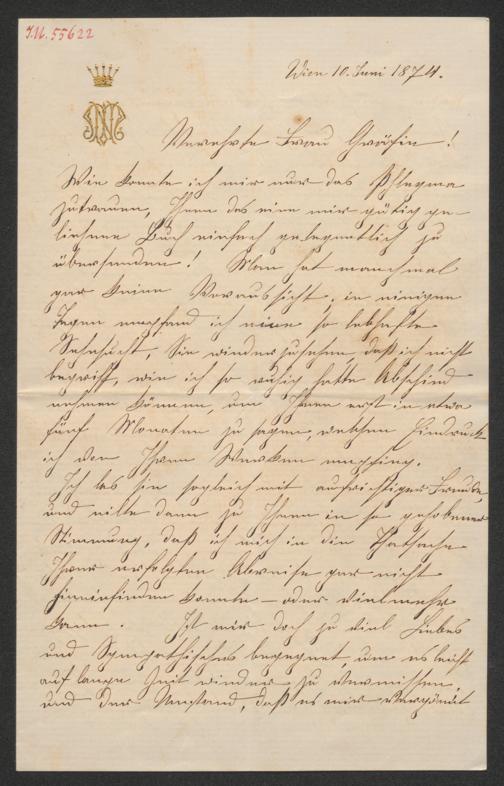 J.N. 55622
Wien 10. Juni 1874.
Verehrte Frau Gräfin!
Wie konnte ich mir nur das Phlegma
zutrauen, Ihnen das eine mir gütig ge-
liehene Buch einfach gelegentlich zu
übersenden! Man hat manchmal
gar keine Voraussicht, in einigen
Tagen empfand ich eine so lebhafte
Sehnsucht, Sie wiederzusehen daß ich nicht
begriff, wie ich so ruhig hatte Abschied
nehmen können, um Ihnen erst in etwa
fünf Monaten zu sagen, welchen Eindruck
ich von Ihren Werken empfing.
Ich las sie sogleich mit aufrichtiger Freude,
und eilte dann zu Ihnen in so gehobener
Stimmung, daß ich mich in die Thatsache
Ihrer erfolgten Abreise gar nicht
hineinfinden konnte – oder vielmehr
kann. Ist mir doch zu viel Liebes
und Sympathisches begegnet, um es leicht
auf lange Zeit wieder zu vermissen,
und der Umstand, daß es mir vergönnt